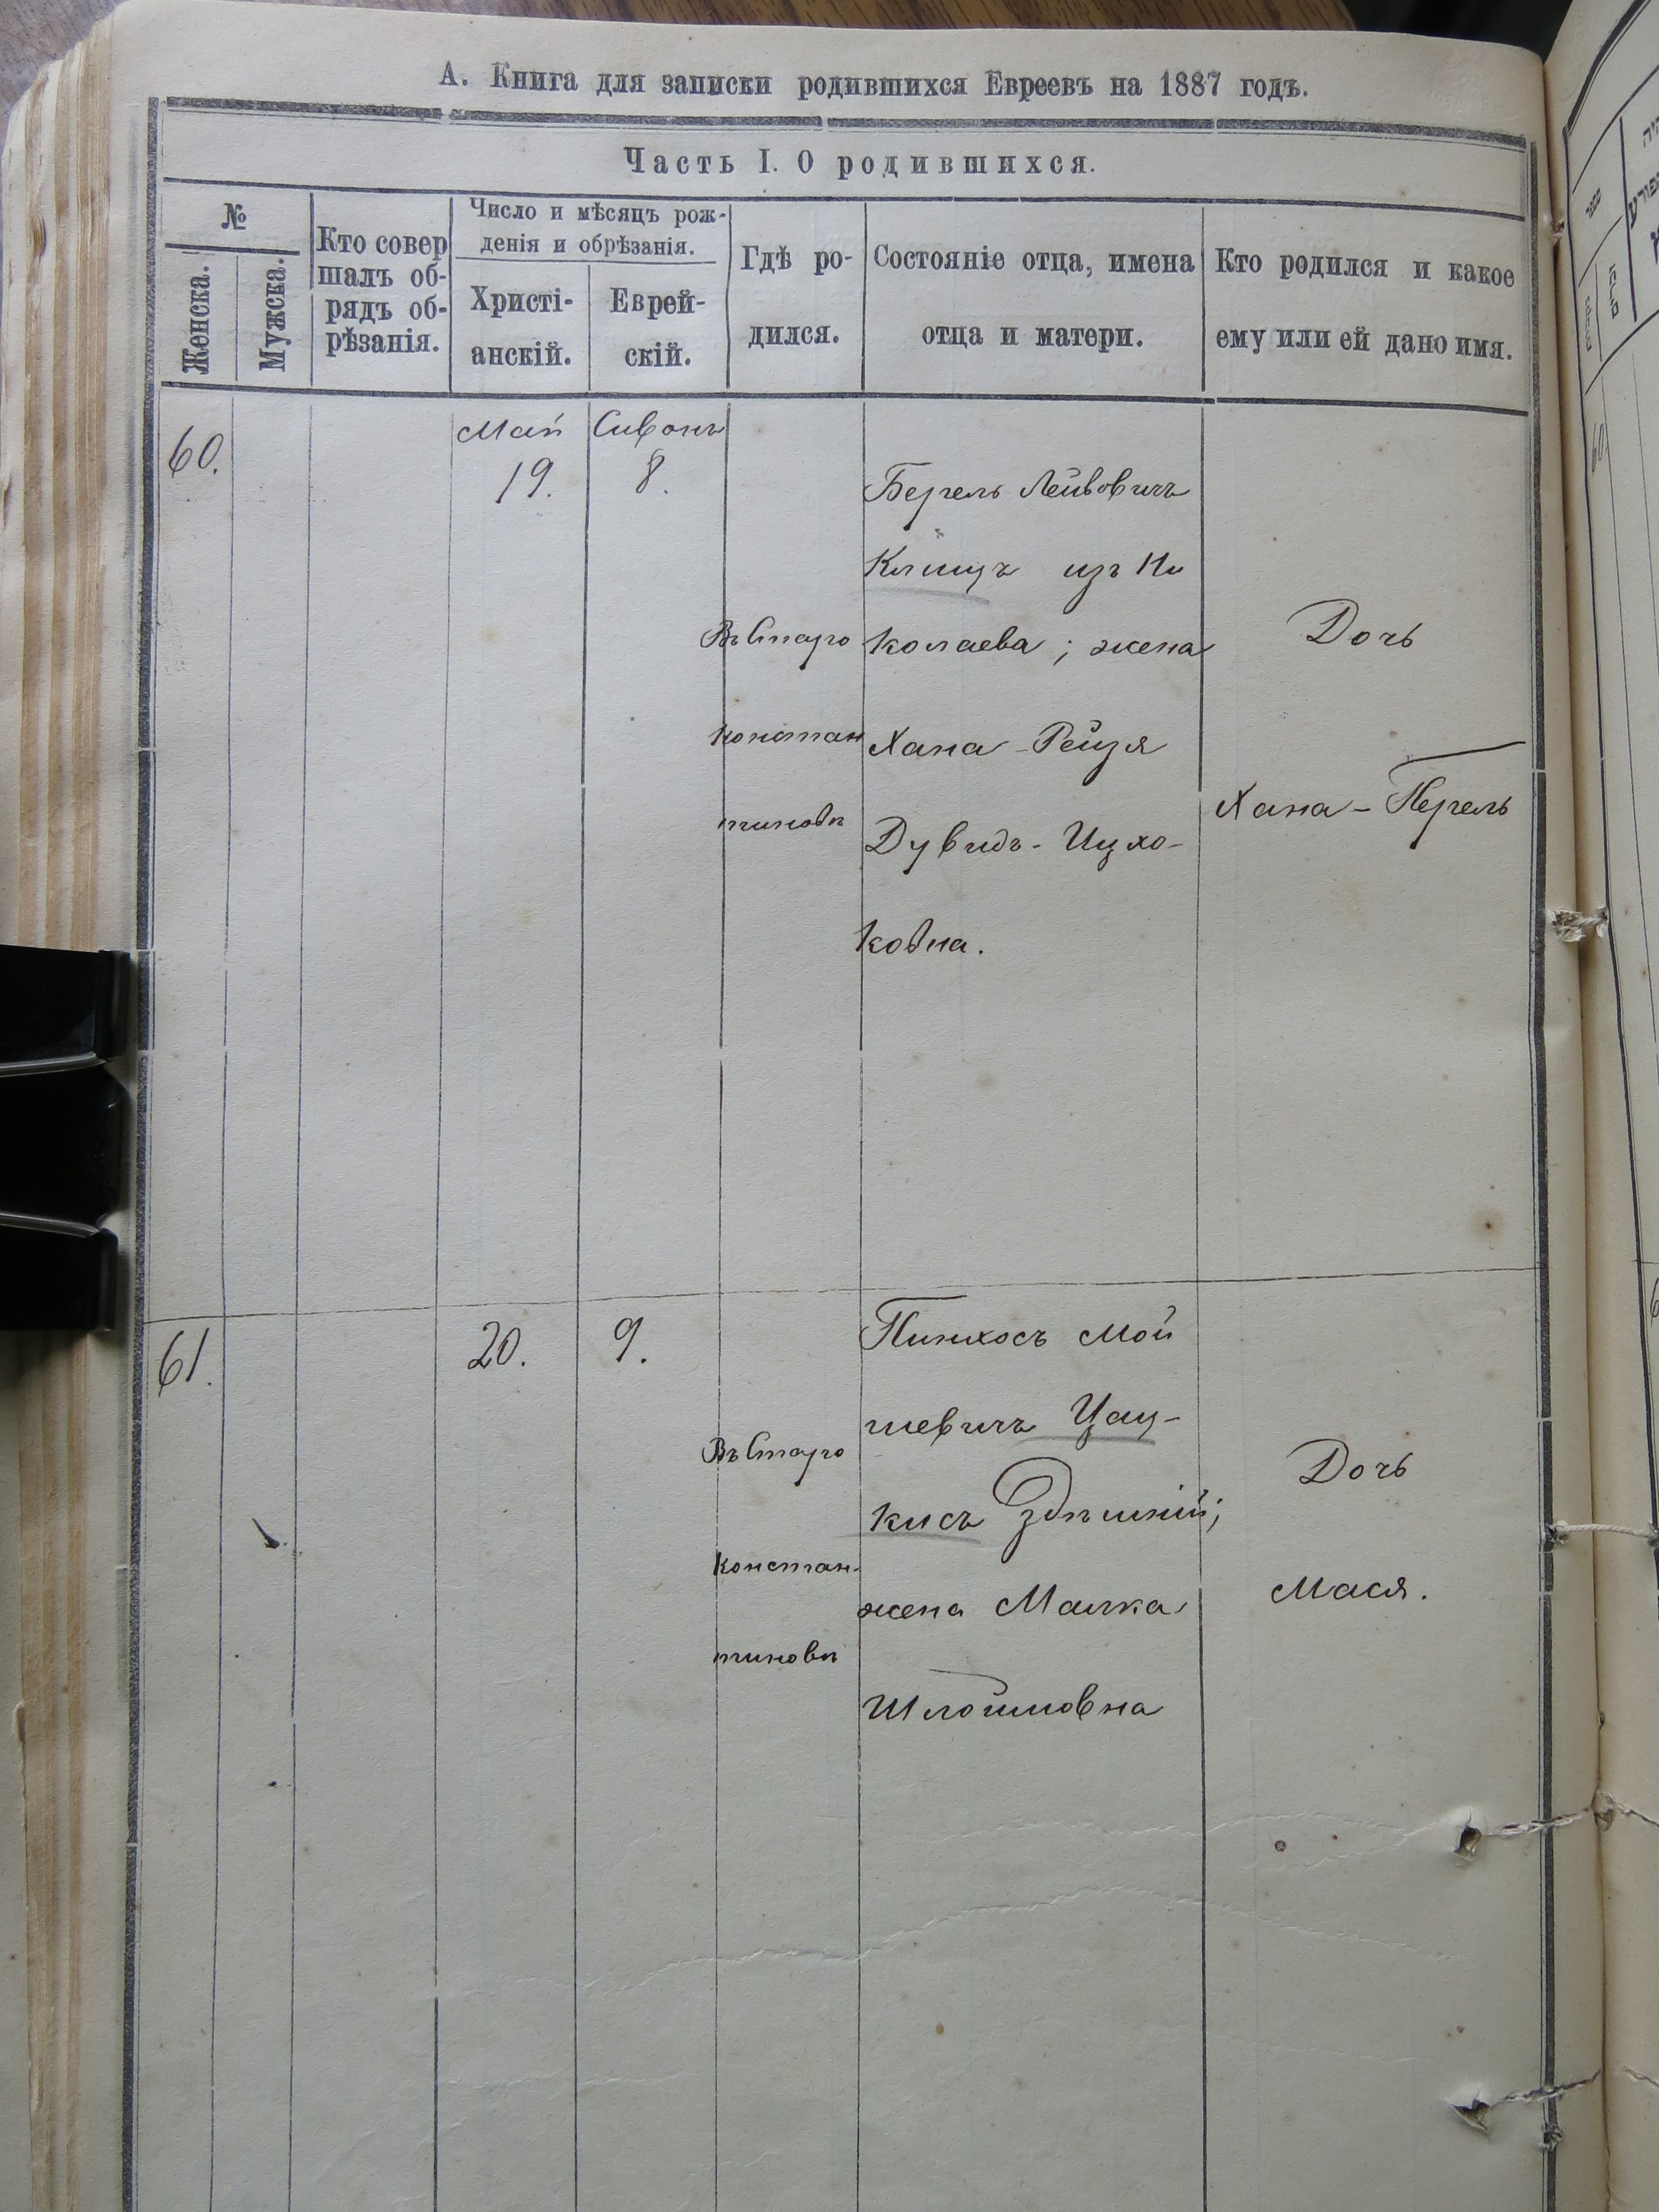 А. Книга для записки родившихся Евреевъ на 1887 годъ.
Часть I. О родившихся.
№
Женска.
Мужска.
Кто совер
шалъ об-
рядъ об-
рѣзанія.
Число и мѣсяцъ рож-
денія и обрѣзанія.
Христі-
анскій.
Еврей-
скій.
Гдѣ ро-
дился.
Состояніе отца, имена
отца и матери.
Кто родился и какое
ему или ей дано имя.
60.
Май
19.
Сивонъ
8.
Въ Старо
констан
тиновѣ
Берель Лейбовичъ
Клищъ изъ Ни
колаева ; жена
Хана - Рейзя
Дувидъ - Ицко-
ковна.
Дочь
Хана - Перель
61.
20.
9.
Въ Старо
констан-
тиновѣ
Пинхосъ Мой
шевичъ Цац-
кисъ здѣшній;
жена Малка
Шлоймовна
Дочь
Мася.